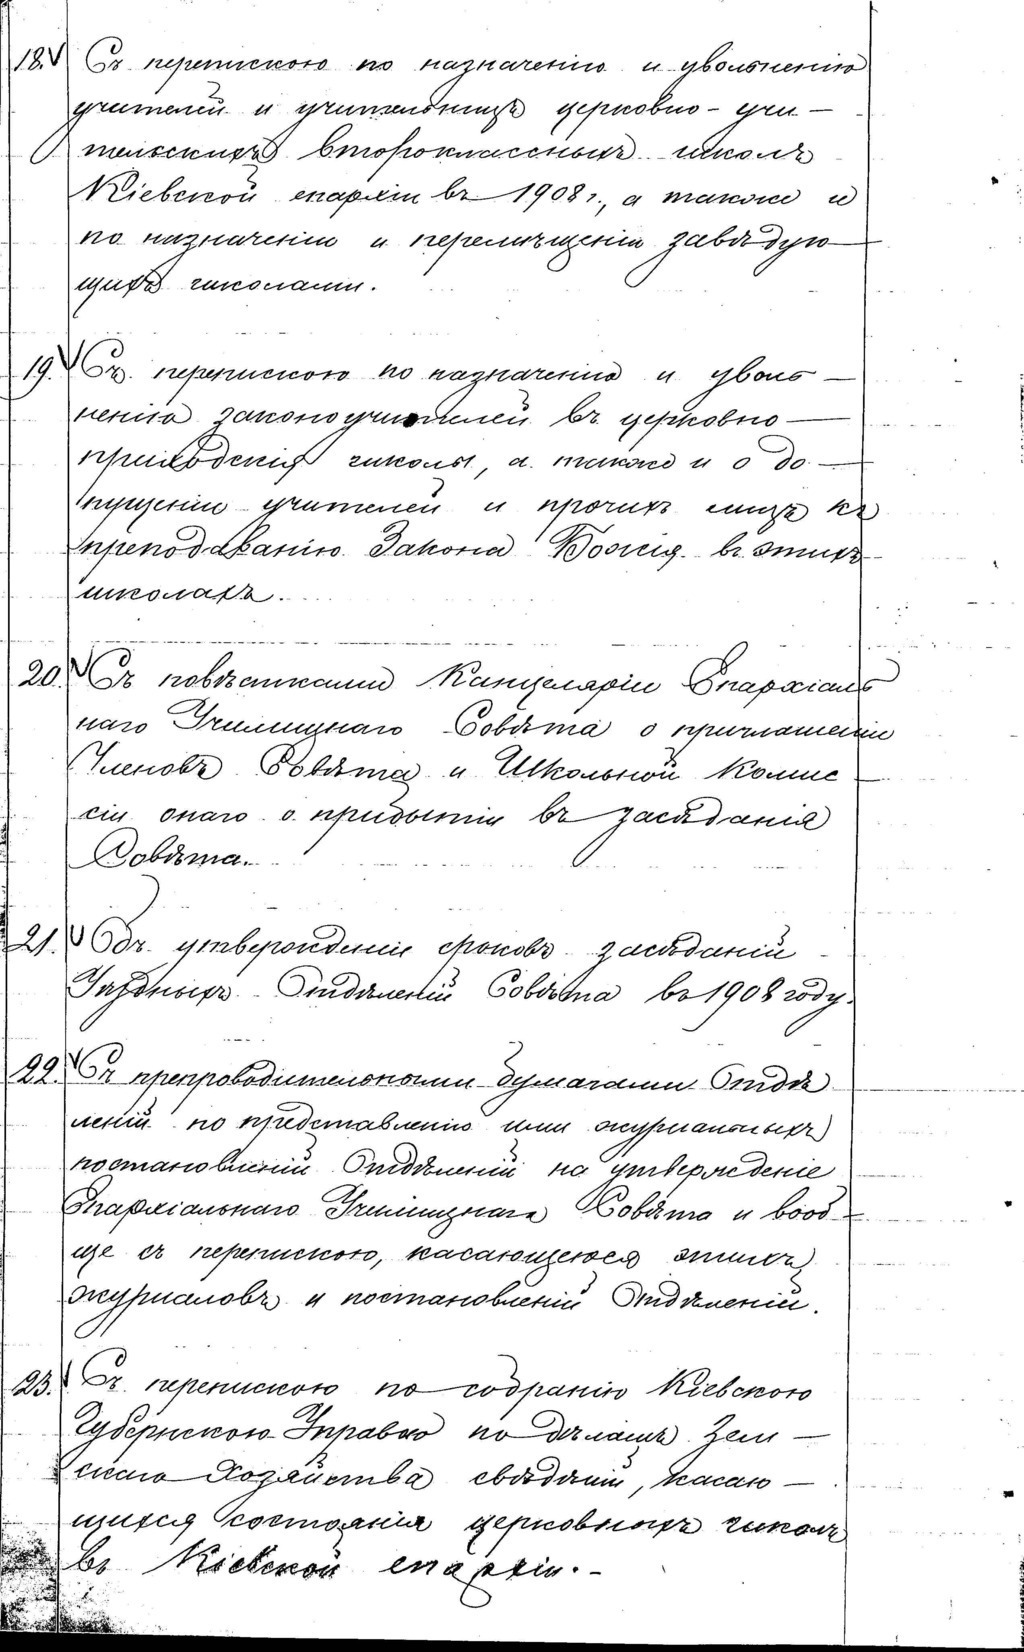 18. Съ перепискою по назначенію и увольненію
учителей и учительницъ церковно-учи-
тельскихъ второклассныхъ школъ
Кіевской епархіи въ 1908 г., а также и
по назначенію и перемѣщенію завѣдую-
щихъ школами.
19. Съ перепискою по назначенію и уволь-
ненію законоучителей въ церковно-
приходскія школы, а также и о до-
пущеніи учителей и прочихъ лицъ къ
преподаванію Закона Божія въ этихъ
школахъ.
20. Съ повѣстками Канцеляріи Епархіаль
наго Училищнаго Совѣта о приглашеніи
Членовъ Совѣта и Школьной Комис
сіи онаго о прибытіи въ засѣданія
Совѣта.
21. Объ утвержденіи сроковъ засѣданій
Уѣздныхъ Отдѣленій Совѣта въ 1908 году.
22. Съ препроводительными бумагами Отдѣ
леній по представленію ими журнальныхъ
постановленій Отдѣленій на утвержденіе
Епархіальнаго Училищнаго Совѣта и вооб-
ще съ перепискою, касающеюся этихъ
журналовъ и постановленій Отдѣленій.
23. Съ перепискою по собранію Кіевскою
Губернскою Управою по дѣламъ Зем-
скаго Хозяйства свѣдѣній, касаю-
щихся состоянія церковныхъ школъ
въ Кіевской епархіи.-